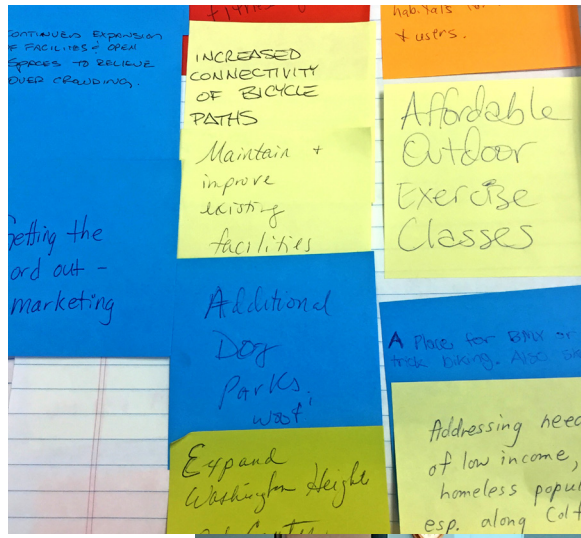 CONTINUED EXPANSION
OF FACILITES & OPEN
SPACES TO RELIEVE
OVER CROWDING.
Getting the
ord out -
marketing
INCREASED
CONNECTIVITY
OF BICYCLE
PATHS
Maintain +
improve
existing
facilities
Additional
Dog
Parks,
woof
Expand
Washington Heights
habitats for
+ users.
Affordable
Outdoor
Exercise
Classes
A Place for BMX or
trick biking. Also
Addressing need
of low income,
homeless popul
esp. along Colf